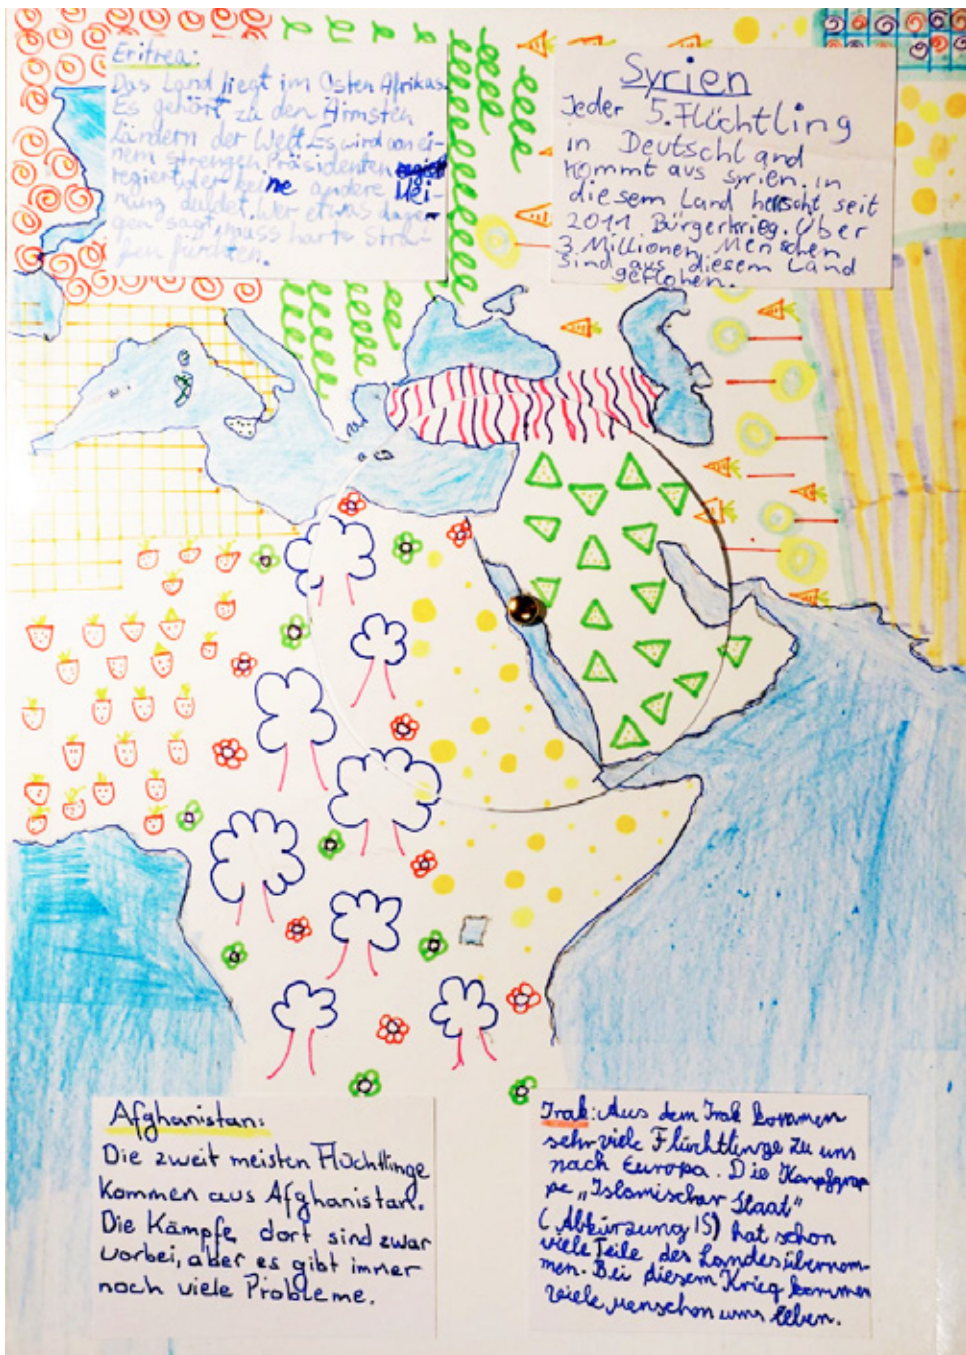 Eritrea:
Das Land liegt im Osten Afrikas.
Es gehört zu den Ärmsten
Ländern der Welt. Es wird von ei-
nem strengen Präsidenten
regiert, der keine andere Mei-
nung duldet. Wer etwas dage-
gen sagt, muss harte Stra-
fen fürchten.
Syrien
Jeder 5. Flüchtling
in Deutschland
kommt aus Syrien. in
diesem Land herscht seit
2011 Bürgerkrieg. Über
3 Millionen Menschen
sind aus diesem Land
geflohen.
Afghanistan:
Die zweit meisten Flüchtlinge
kommen aus Afghanistan.
Die Kämpfe, dort sind zwar
vorbei, aber es gibt immer
noch viele Probleme.
Irak: Aus dem Irak kommen
sehr viele Flüchtlinge zu uns
nach Europa. Die Kampfgrup
pe „Islamischer Staat"
(Abkürzung IS) hat schon
viele Teile des Landes übernom-
men. Bei diesem Krieg kommen
viele Menschen ums Leben.